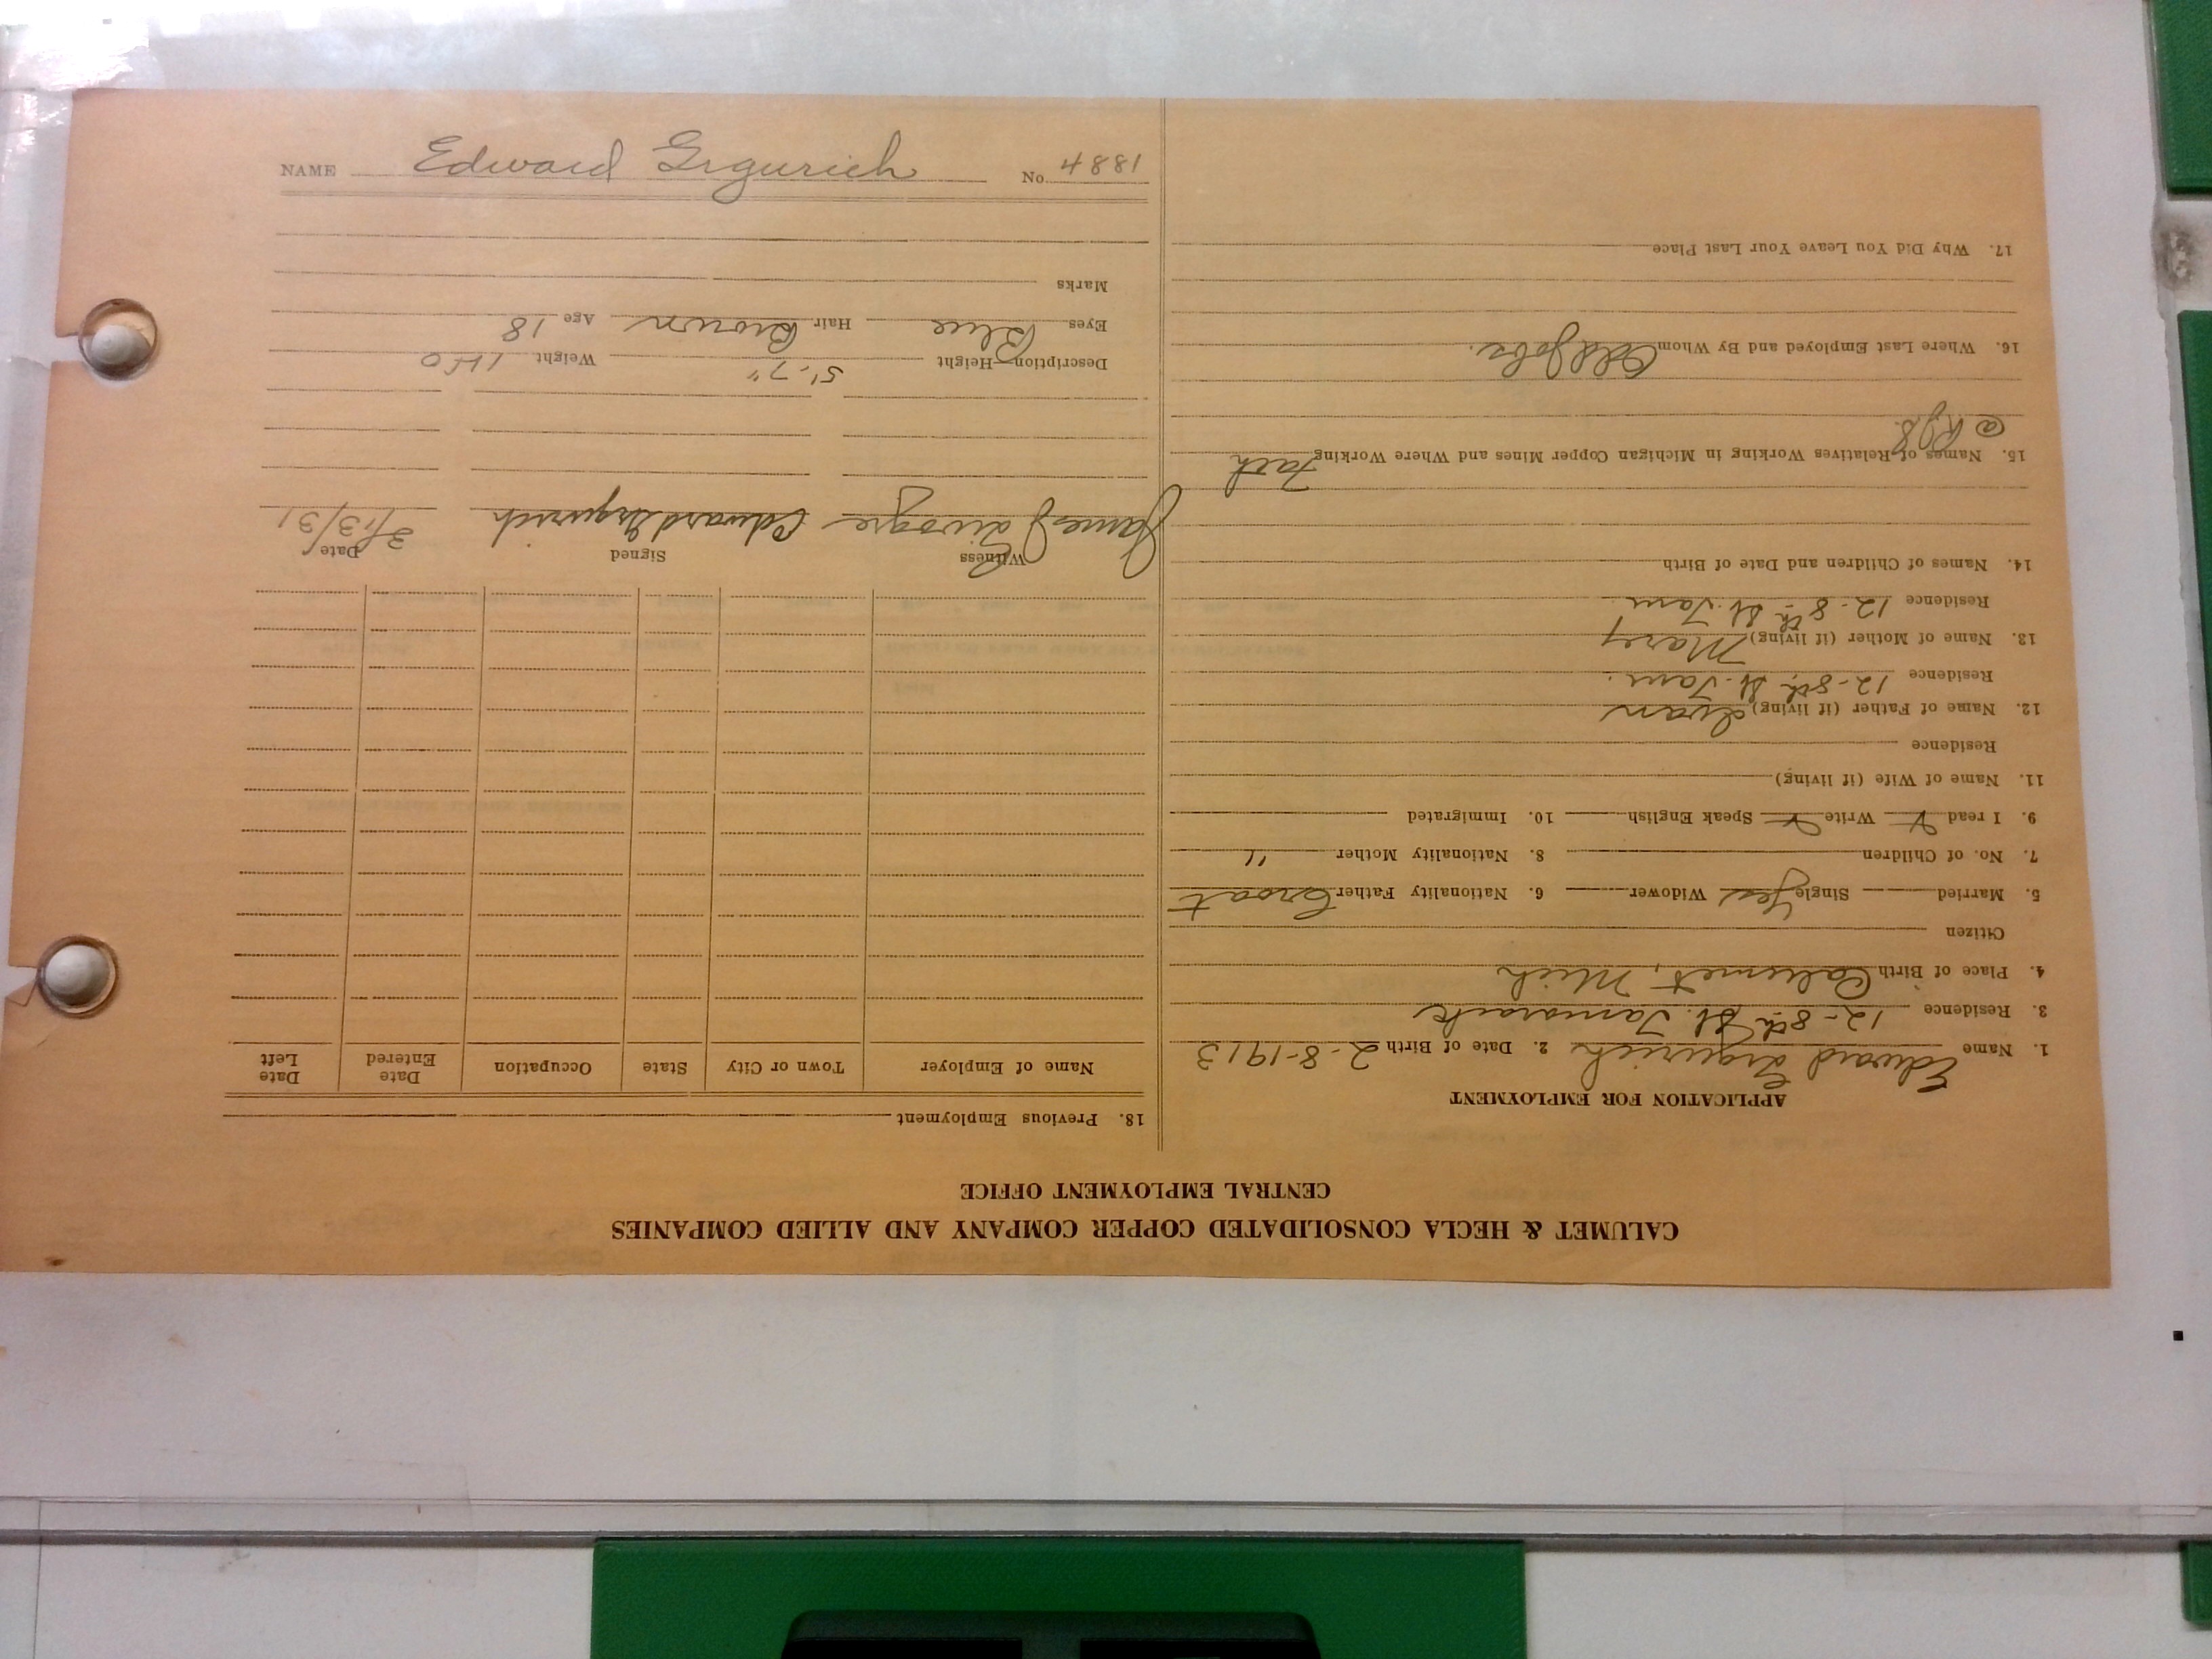 CALUMET & HECLA CONSOLIDATED COPPER COMPANY AND ALLIED COMPANIES
CENTRAL EMPLOYMENT OFFICE
APPLICATION FOR EMPLOYMENT
1. Name Edward Grgurich 2. Date of Birth 2-8-1913
3. Residence 12-8th St. Tamarack
4. Place of Birth Calumet, Mich
Citizen
5. Married Single Yes Widower 6. Nationality Father Croat
7. No. of Children 8. Nationality Mother "
9. I read Write Speak English 10. Immigrated
11. Name of Wife (if living)
Residence
12. Name of Father (if living) Ivan
Residence 12-8th St. Tam.
13. Name of Mother (if living) Mary
Residence 12-8th St. Tam.
14. Names of Children and Date of Birth
15. Names of Relatives Working in Michigan Copper Mines and Where Working Fath
@
16. Where Last Employed and By Whom Odd Jobs.
17. Why Did You Leave Your Last Place
18. Previous Employment
Name of Employer Town or City State Occupation Date Entered Date Left
Witness Signed Date
James Edward Grgurich 3/13/31
Description—Height 5'-7" Weight 150
Eyes Blue Hair Brown Age 18
Marks
NAME Edward Grgurich No. 4881